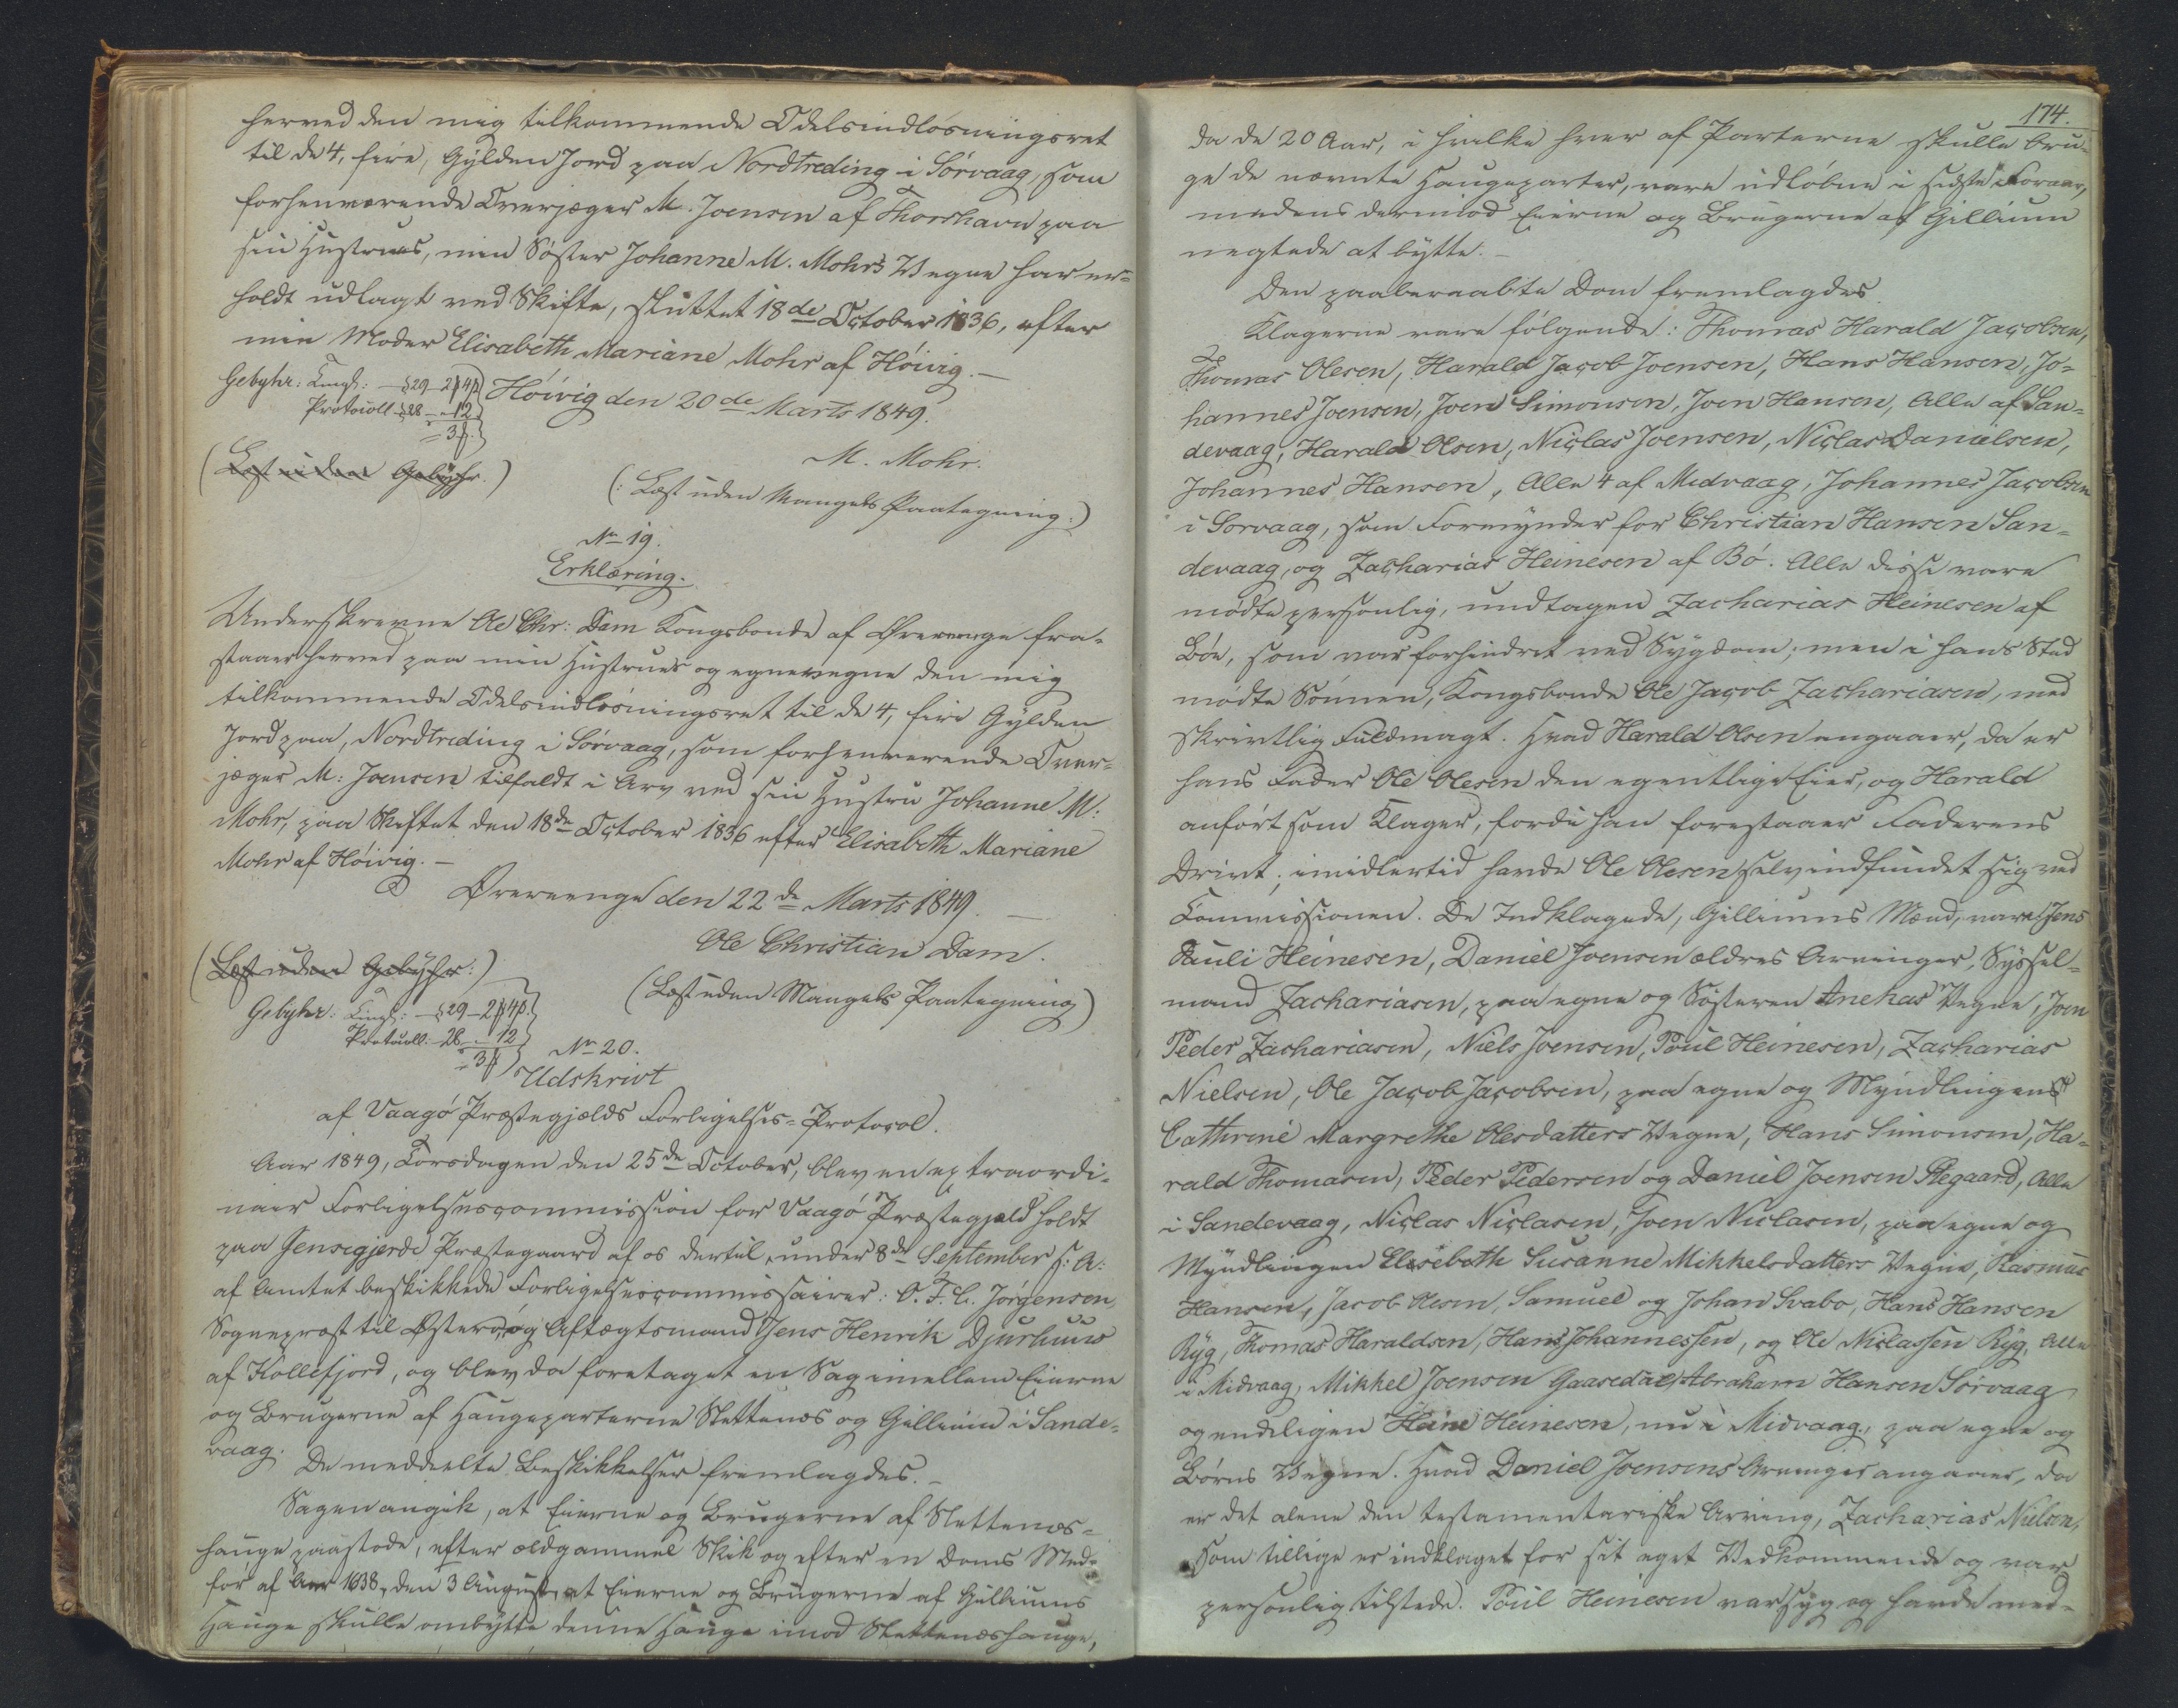 herved den mig tilkommende Odelsindløsningsret
til de 4, fire, Gylden Jord paa Nordtreding i Sörvaag, som
forhenværende Overjæger M. Joensen af Thorshavn paa
sin Hustrues, min Søster Johanne M. Mohr's Vegne har er=
holdt udlagt ved Skifte, sluttet 18de October 1836, efter
min Moder Elisabeth Mariane Mohr af Höivig.—
Höivig den 20de Marts 1849.
M. Mohr.
Gebyhr: Tingl: - §29 - 2 4
Protocoll §28 - 12
= 3
(Læst uden Gebyhr.)
(: Læst uden Mangels Paategning:)
No 19.
Erklæring.
Underskrevne Ole Chr: Dam Kongsbonde af Öreenge fra=
staaer herved paa min Hustrues og egne vegne den mig
tilkommende Odelsindløsningsret til de 4, fire Gylden
Jord paa, Nordtreding i Sörvaag, som forhenværende Over=
jæger M: Joensen tilfaldt i Arv ved sin Hustru Johanne M:
Mohr, paa Skiftet den 18de October 1836 efter Elisabeth Mariane
Mohr af Höivig.—
Örereenge den 22de Marts 1849.—
Ole Christian Dam.
(Læst uden Gebyhr:)
(Læst uden Mangels Paategning)
Gebyhr: Tingl: - §29 - 2 4
Protocoll. 28 - 12
= 3
No 20.
Udskrivt
af Vaagö Præstegjælds Forligelses=Protocol.
Aar 1849, Torsdagen den 25de October, blev en extraordi=
nair Forligelsescommission for Vaagö Præstegjæld holdt
paa Jensegjerde Præstegaard af os dertil, under 8de September s: A:
af Amtet beskikkede Forligelsescommissairer: O. F. C. Jörgensen,
Sognepræst til Österö, og Aftægtsmand Jens Henrik Djurhuus
af Kollefjord, og blev da foretaget en Sag imellem Eierne
og Brugerne af Haugeparterne Slettenæs og Gillium i Sande=
vaag.
De meddeelte Beskikkelser fremlagdes.—
Sagen angik, at Eierne og Brugerne af Slettenæs=
hauge paastode, efter ældgammel Skik og efter en Doms Med=
for af Aar 1638, den 3 August, at Eierne og Brugerne af Gilliums
Hauge skulle ombytte denne Hauge imod Slettenæshauge,
174.
da de 20 Aar, i hvilke hver af Parterne skulle bru=
ge de nævnte Haugeparter, vare udløbne i sidste Foraar,
medens derimod Eierne og Brugerne af Gillium
negtede at bytte.—
Den paaberaabte Dom fremlagdes.
Klagerne vare følgende: Thomas Harald Jacobsen,
Thomas Olesen, Harald Jacob Joensen, Hans Hansen, Jo=
hannes Joensen, Joen Simonsen, Joen Hansen, Alle af San=
devaag, Harald Olsen, Niclas Joensen, Niclas Danielsen,
Johannes Hansen, Alle 4 af Midvaag, Johannes Jacobsen
i Sorvaag, som Formynder for Christian Hansen San=
devaag, og Zacharias Heinesen af Bö. Alle disse vare
mødte personlig, undtagen Zacharias Heinesen af
Böe, som var forhindret ved Sygdom; men i hans Sted
mødte Sönnen, Kongsbonde Ole Jacob Zachariasen, med
skrivtlig Fuldmagt. Hvad Harald Olsen angaaer, da er
hans Fader Ole Olesen den egentlige Eier, og Harald
anført som Klager, fordi han forestaaer Faderens
Drivt; imidlertid havde Ole Olesen selv indfundet sig ved
Commissionen. De Indklagede, Gilliums Mænd, vare: Jens
Pauli Heinesen, Daniel Joensen ældres Arvinger, Syssel=
mand Zachariasen, paa egne og Søsteren Anehas Vegne, Joen
Peder Zachariasen, Niels Joensen, Poul Heinesen, Zacharias
Nielsen, Ole Jacob Jacobsen, paa egne og Myndlingens
Cathrine Margrethe Olesdatters Vegne, Hans Simonsen, Ha=
rald Thomasen, Peder Pedersen og Daniel Joensen Regaard, Alle
i Sandevaag, Niclas Niclasen, Joen Niclasen, paa egne og
Myndlingen Elesebeth Susanne Mikkelsdatters Vegne, Rasmus
Hansen, Jacob Olesen, Samuel og Johan Svabo, Hans Hansen
Ryg, Thomas Haraldsen, Hans Johannessen, og Ole Niclassen Ryg, Alle
i Midvaag, Mikkel Joensen Gaasedal, Abraham Hansen Sörvaag
og endeligen Heine Heinesen, nu i Midvaag, paa egne og
Børns Vegne. Hvad Daniel Joensens Arvinger angaaer, da
er det alene den testamentariske Arving, Zacharias Nielsen,
som tillige er indklaget for sit eget Vedkommende og var
personlig tilstede. Poul Heinesen var syg og havde med=